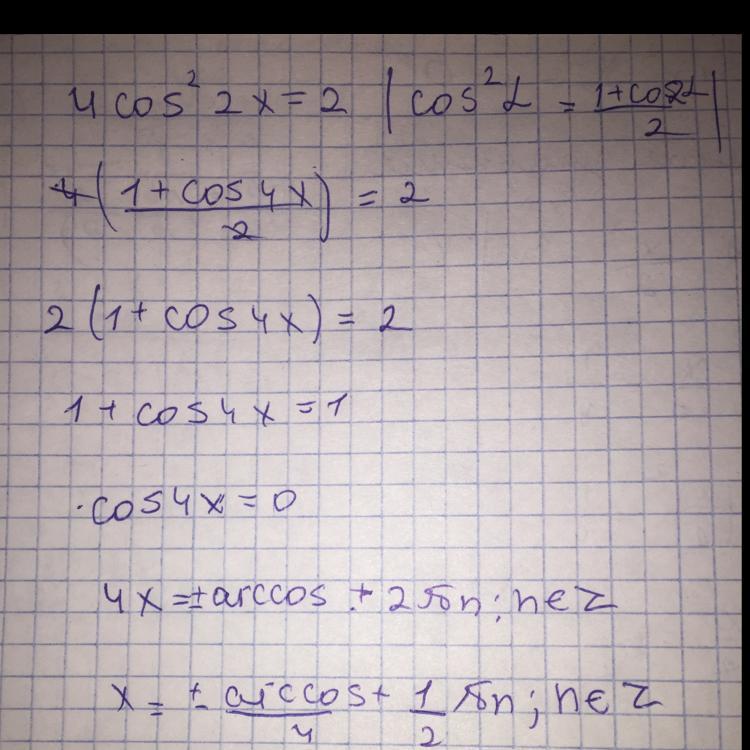 4 cos² 2x = 2 | cos²α = (1+cos2α)/2 |
4((1 + cos 4x)/2) = 2
2(1 + cos 4x) = 2
1 + cos 4x = 1
cos 4x = 0
4x = ± arccos + 2πn; n∈Z
x = ± arccos/4 + 1/2 πn; n∈Z